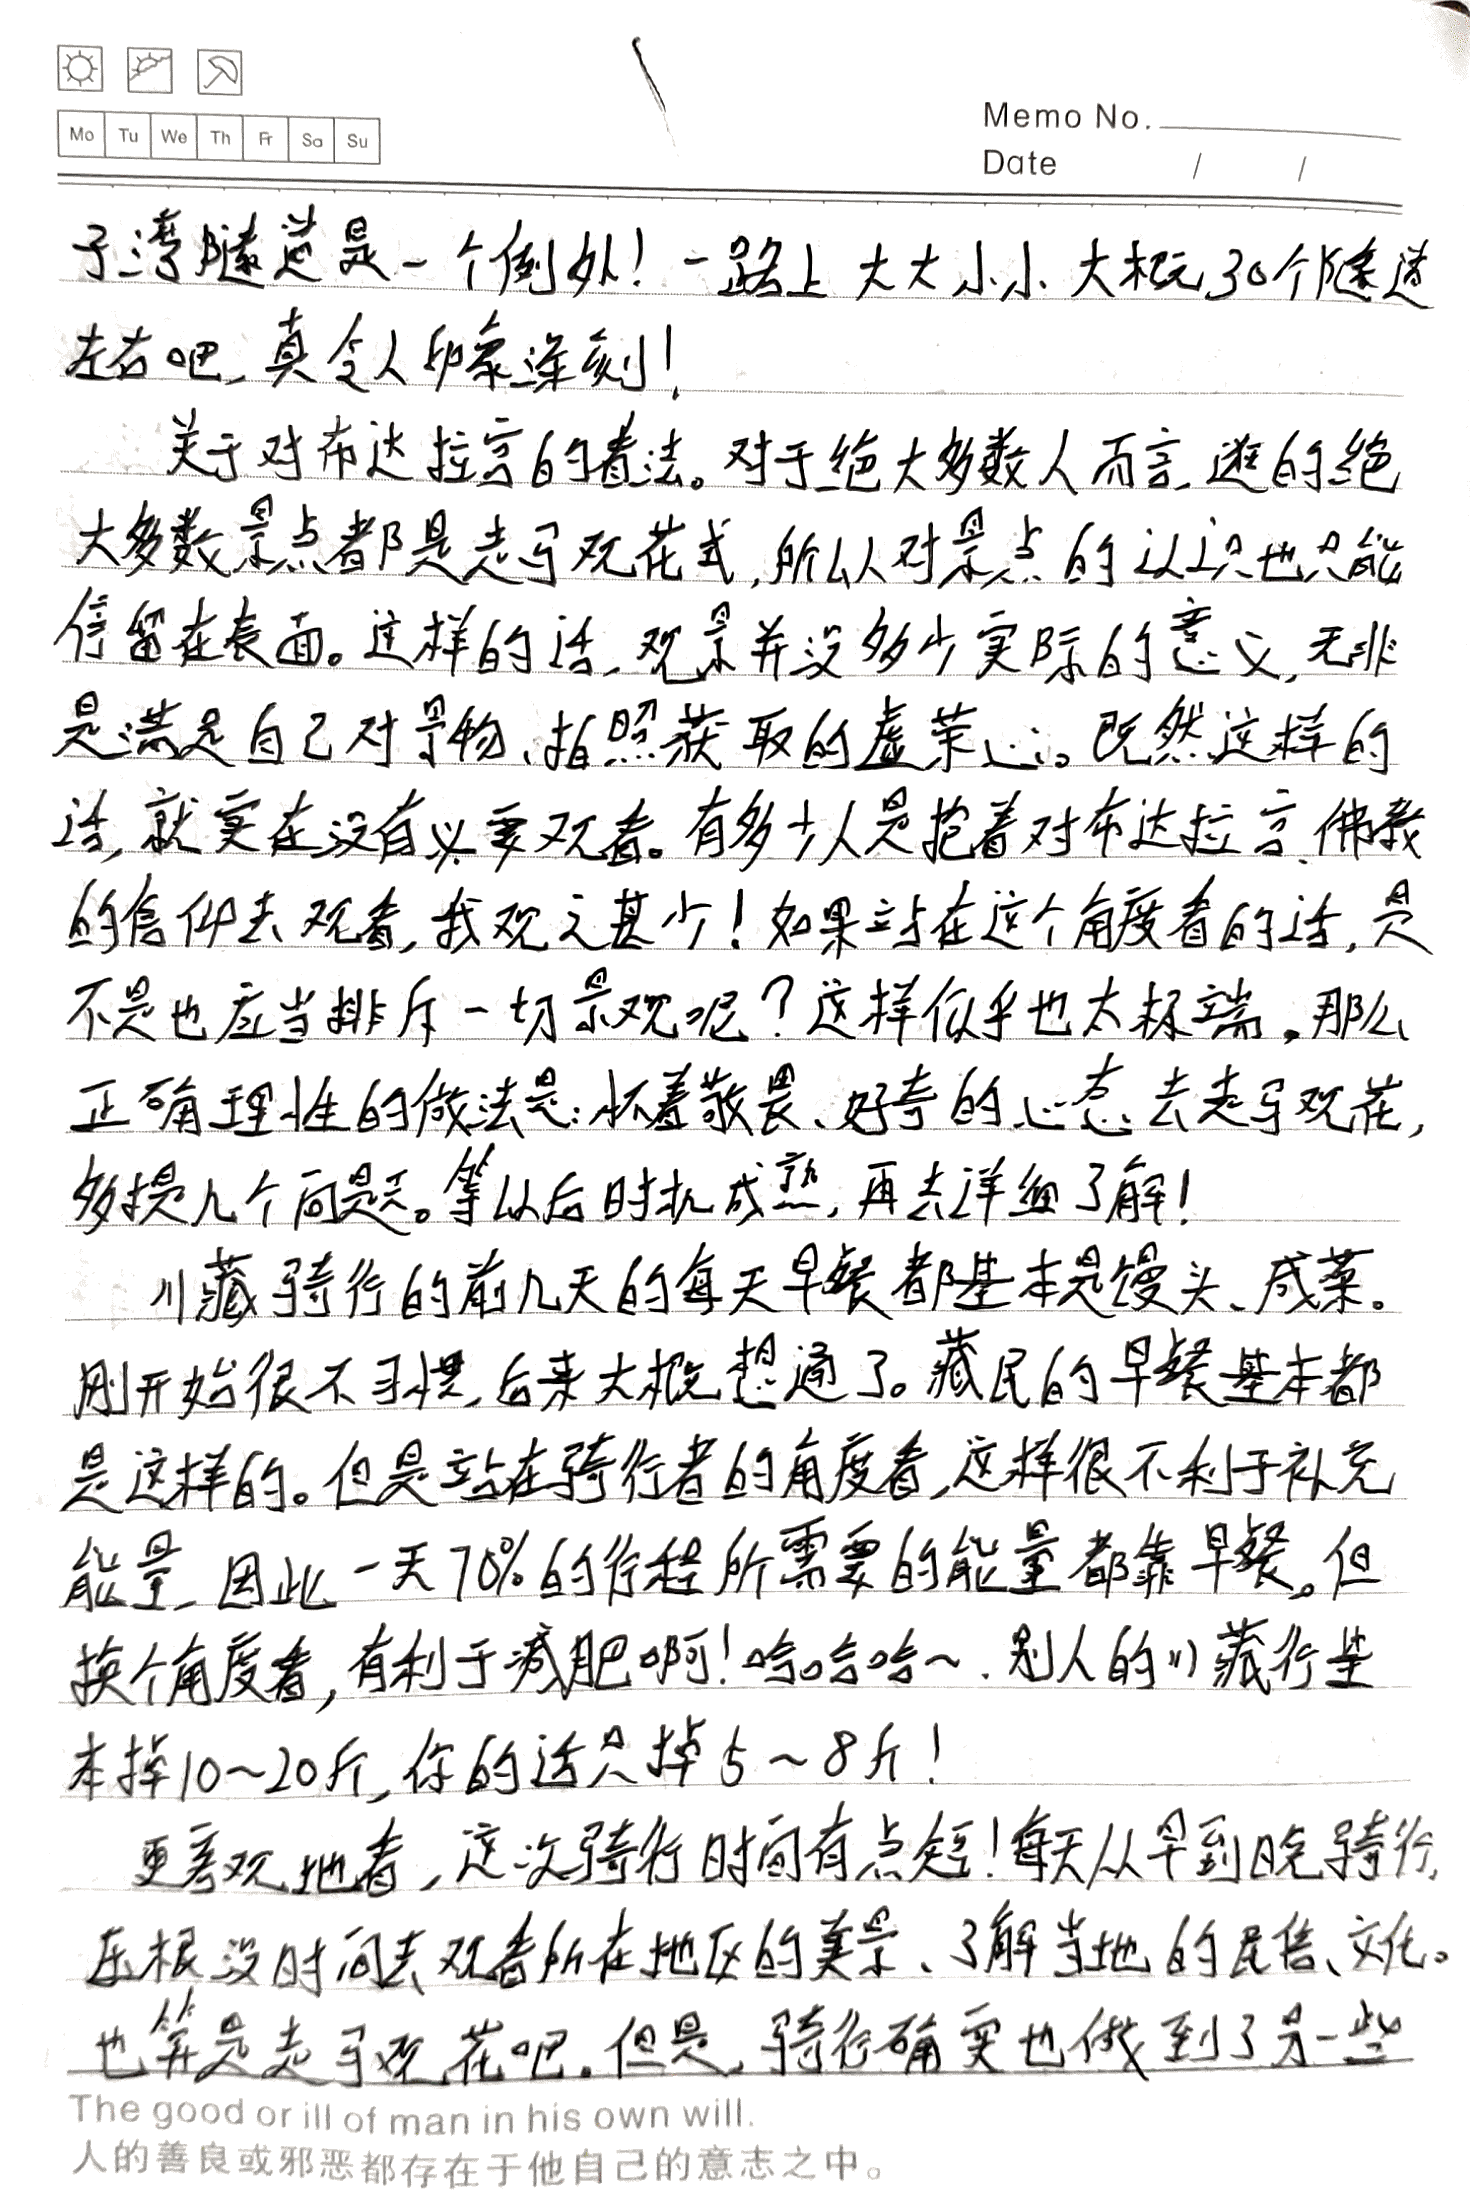 Mo Tu We Th Fr Sa Su
Memo No.
Date / /
子湾隧道是一个例外！一路上大大小小大概30个隧道
左右吧，真令人印象深刻！
关于对布达拉宫的看法。对于绝大多数人而言，逛的绝
大多数景点都是走马观花式，所以对景点的认识也只能
停留在表面。这样的话，观景并没多少实际的意义，无非
是满足自己对景物、拍照获取的虚荣心。既然这样的
话，就实在没有必要观看。有多少人是抱着对布达拉宫、佛教
的信仰去观看，我观之甚少！如果站在这个角度看的话，是
不是也应当排斥一切景观呢？这样似乎也太极端，那么
正确理性的做法是：怀着敬畏、好奇的心态去走马观花，
多提几个问题。等以后时机成熟，再去详细了解！
川藏骑行的前几天的每天早餐都基本是馒头、咸菜。
刚开始很不习惯，后来大概想通了。藏民的早餐基本都
是这样的。但是站在骑行者的角度看，这样很不利于补充
能量，因此一天70%的行程所需要的能量都靠早餐。但
换个角度看，有利于减肥啊！哈哈哈～．别人的川藏行基
本掉10～20斤，你的话只掉5～8斤！
更客观地看，这次骑行时间有点短！每天从早到晚骑行，
压根没时间去观看所在地区的美景、了解当地的民俗、文化。
也算是走马观花吧．但是，骑行确实也做到了另一些
The good or ill of man in his own will.
人的善良或邪恶都存在于他自己的意志之中。